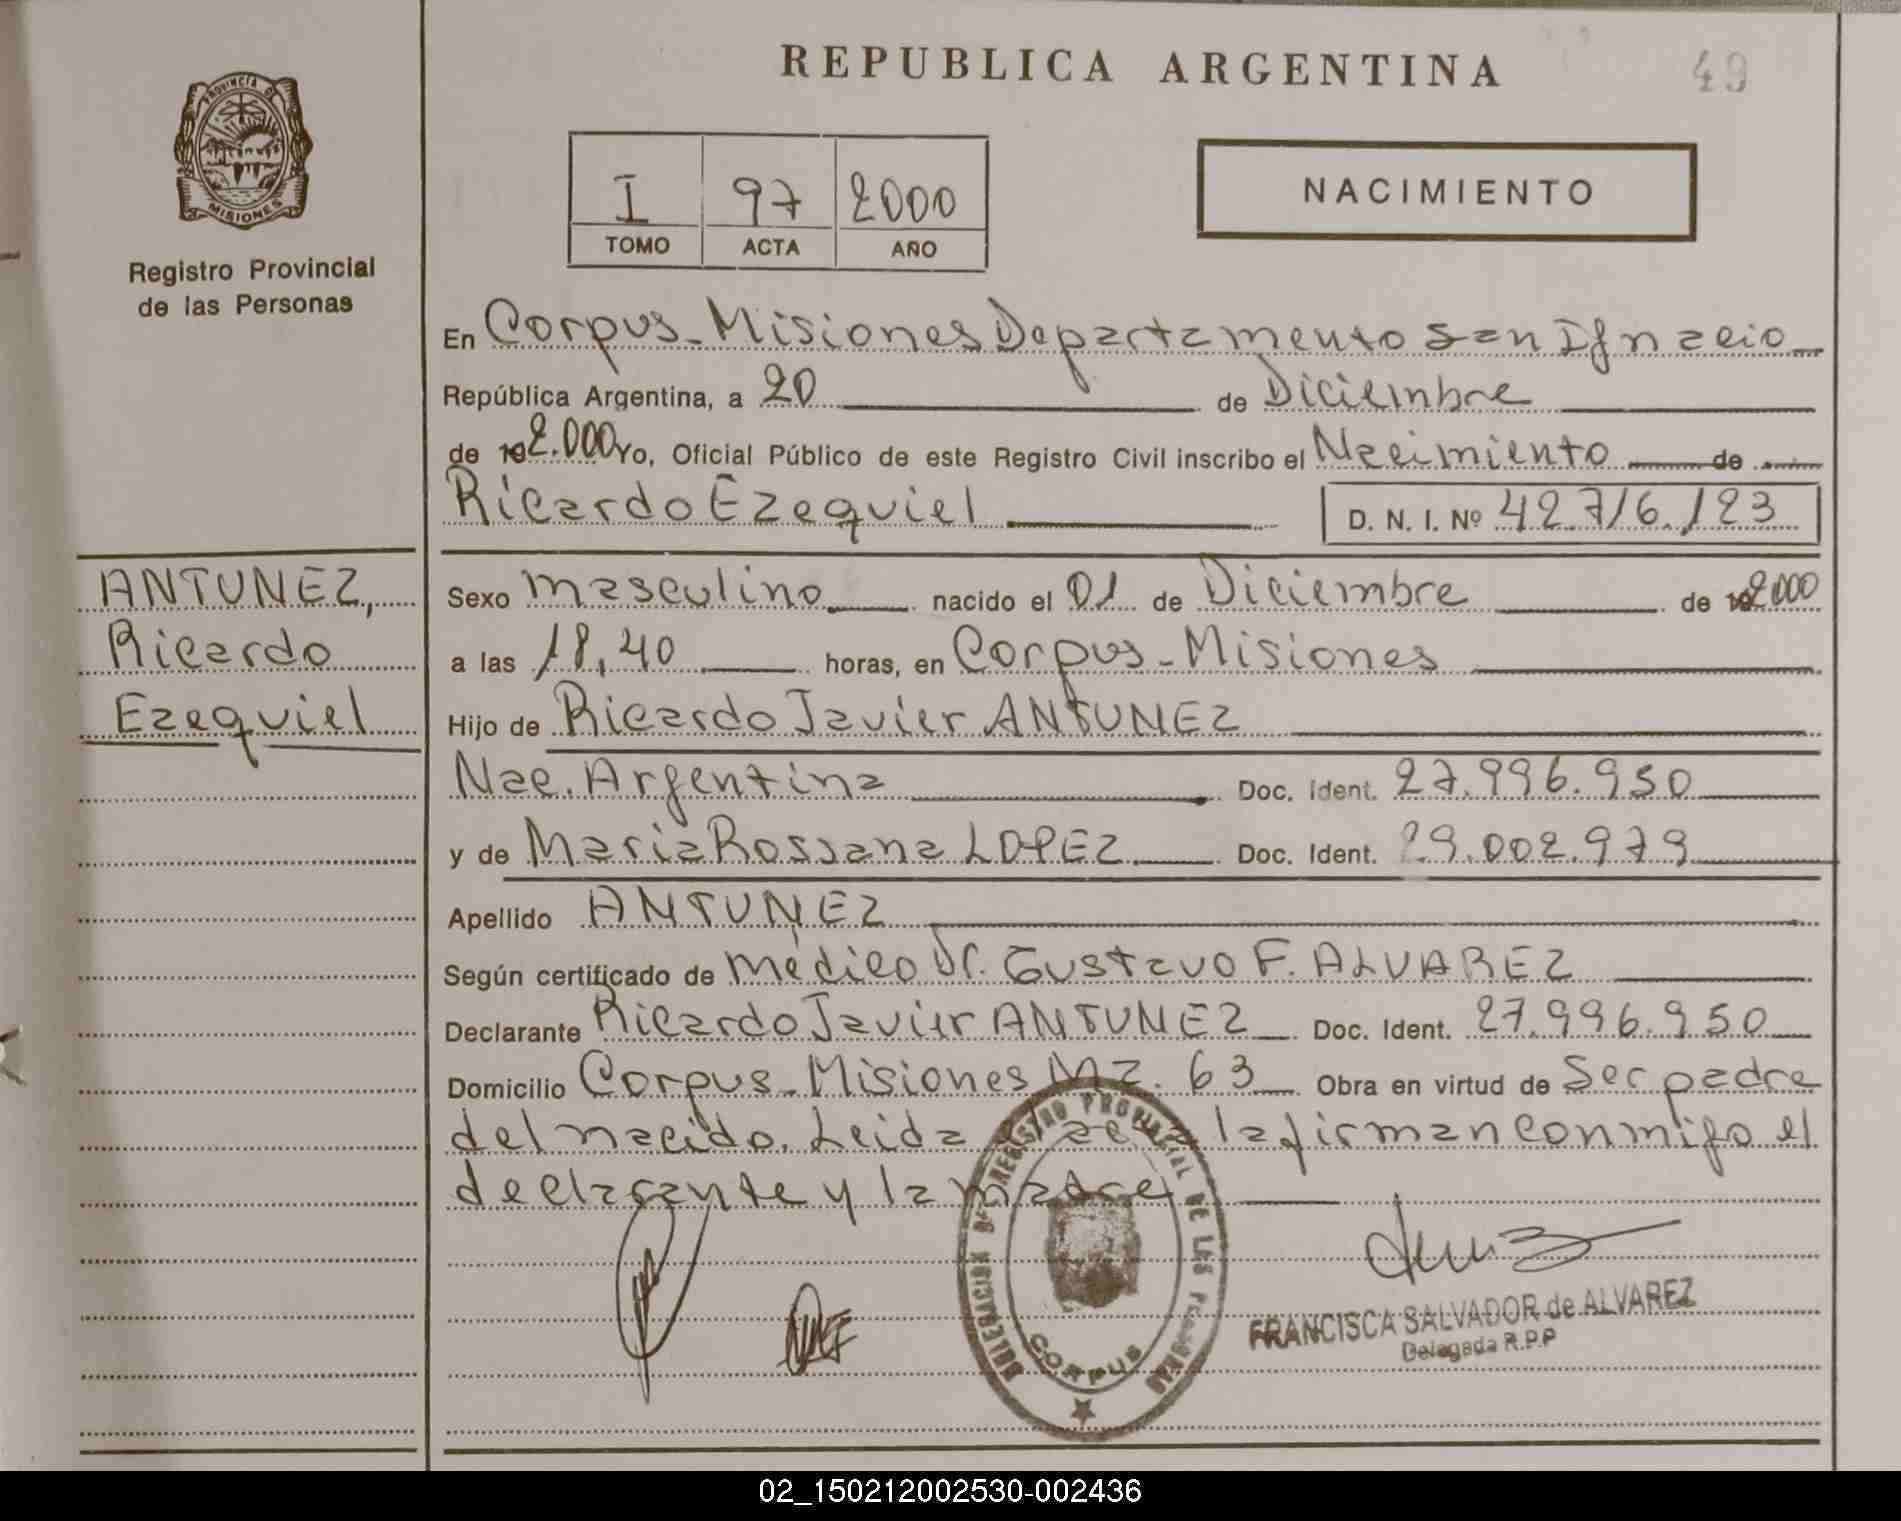 REPUBLICA ARGENTINA
49
PROVINCIA DE
MISIONES
Registro Provincial
de las Personas
I 97 2000
TOMO ACTA AÑO
NACIMIENTO
En Corpus - Misiones Departamento San Ignacio
República Argentina, a 20 de Diciembre
de 19 2.000 Yo, Oficial Público de este Registro Civil inscribo el Nacimiento de
Ricardo Ezequiel D. N. I. Nº 42.716.123
ANTUNEZ,
Ricardo
Ezequiel
Sexo masculino nacido el 01 de Diciembre de 19 2000
a las 18,40 horas, en Corpus - Misiones
Hijo de Ricardo Javier ANTUNEZ
Nac. Argentina Doc. Ident. 27.996.950
y de Maria Rossana LOPEZ Doc. Ident. 29.002.979
Apellido ANTUNEZ
Según certificado de médico Dr. Gustavo F. ALVAREZ
Declarante Ricardo Javier ANTUNEZ Doc. Ident. 27.996.950
Domicilio Corpus - Misiones Mz. 63 Obra en virtud de Ser padre
del nacido. Leida el acta la firman conmigo el
declarante y la madre
REGISTRO PROVINCIAL DE LAS PERSONAS
CORPUS
FRANCISCA SALVADOR de ALVAREZ
Delegada R.P.P
02_150212002530-002436